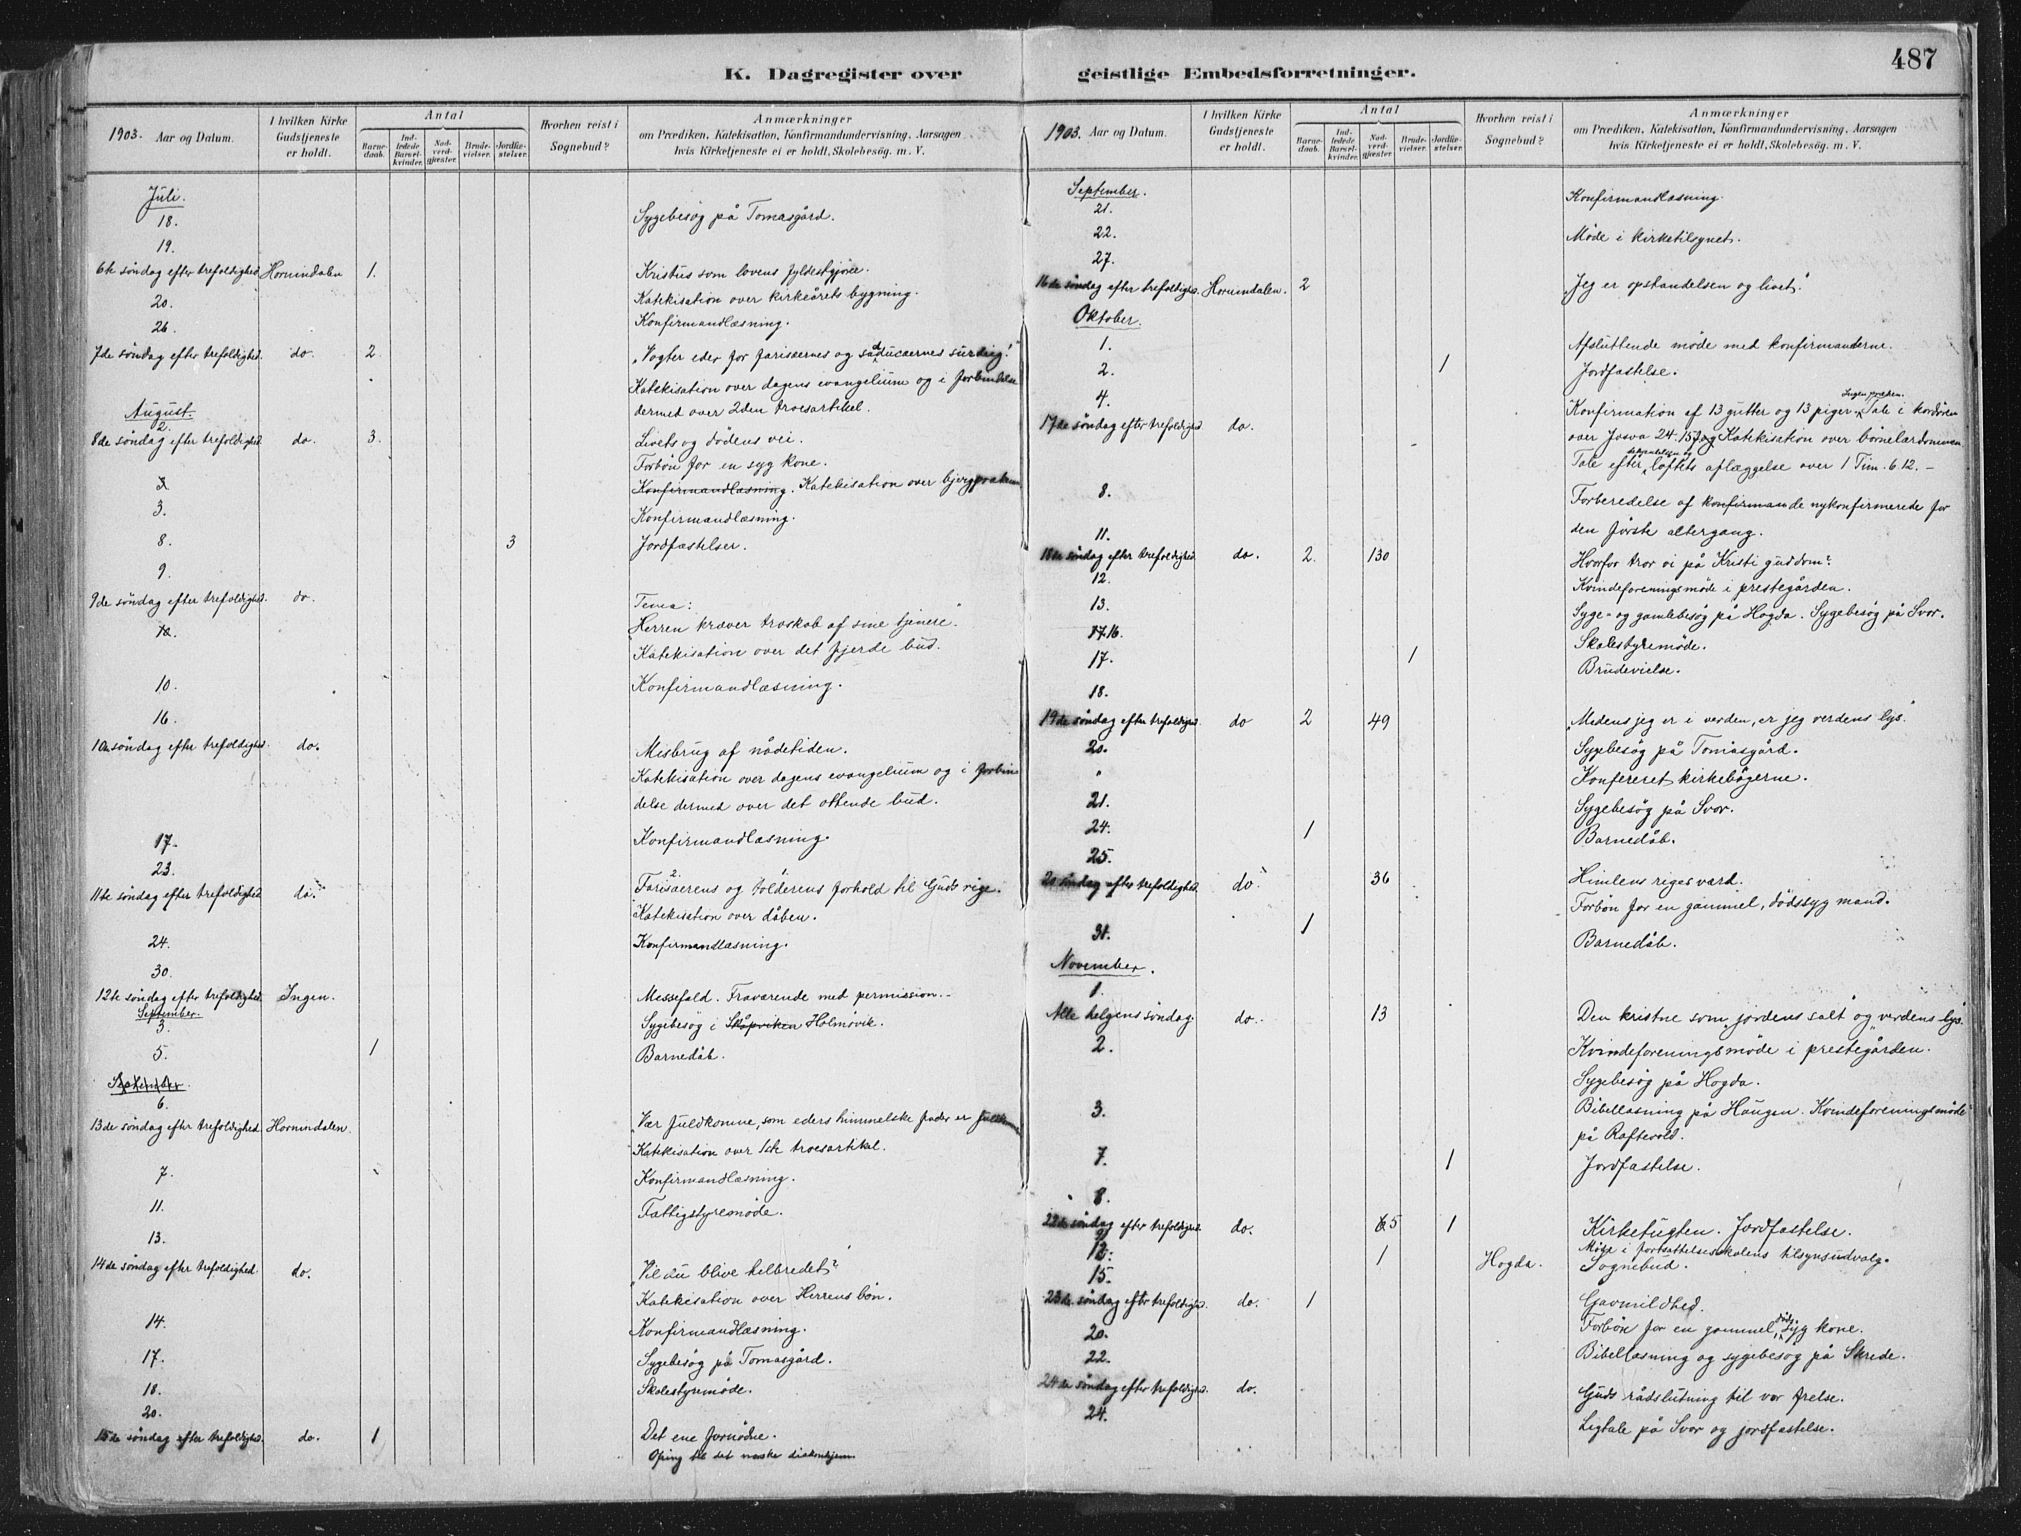 487
K. Dagregister over geistlige Embedsforretninger.
1903. Aar og Datum.
I hvilken Kirke Gudstjeneste er holdt.
Antal
Barnedaab.
Indledede Barselkvinder.
Nadverdgjæster.
Brudevielser.
Jordfæstelser.
Hvorhen reist i Sognebud?
Anmærkninger
om Prædiken, Katekisation, Konfirmandundervisning, Aarsagen
hvis Kirketjeneste ei er holdt, Skolebesøg. m. V.
Juli.
18. Sygebesøg på Tomasgård.
19.
6te søndag efter trefoldighed Hornindalen 1. Kristus som lovens fyldestgjører.
20. Katekisation over kirkeårets bygning.
26. Konfirmandlæsning.
7de søndag efter trefoldighed. do. 2. „Vogter eder for farisæernes og sadducæernes surdeig!"
Katekisation over dagens evangelium og i forbindelse
August. dermed over 2den troesartikel.
2.
8de søndag efter trefoldighed. do. 3. Livets og dødens vei.
Forbøn for en syg kone.
Konfirmandlæsning. Katekisation over bjergprækenen
3. Konfirmandlæsning.
8. 3 Jordfæstelser.
9.
9de søndag efter trefoldighed. do. Tema:
Herren kræver troskab af sine tjenere.
10. Katekisation over det fjerde bud.
10. Konfirmandlæsning.
16.
10de søndag efter trefoldighed. do. Misbrug af nådetiden.
Katekisation over dagens evangelium og i forbin-
delse dermed over det ottende bud.
17. Konfirmandlæsning.
23.
11te søndag efter trefoldighed do. Farisæerens og tolderens forhold til Guds rige.
Katekisation over dåben.
24. Konfirmandlæsning.
30.
12te søndag efter trefoldighed. Ingen. Messefald. Fraværende med permission.
September.
3. Sygebesøg i Skåpviken Holmøvik.
5. 1 Barnedåb.
September.
6.
13de søndag efter trefoldighed. Hornindalen. „Vær fuldkomne, som eders himmelske fader er fuldkommen
Katekisation over 1ste troesartikel.
7. Konfirmandlæsning.
11. Fattigstyremøde.
13.
14de søndag efter trefoldighed. do. „Vil du blive helbredet?"
Katekisation over Herrens bøn.
14. Konfirmandlæsning.
17. Sygebesøg på Tomasgård.
18. Skolestyremøde.
20.
15de søndag efter trefoldighed. do. 1 Det ene fornødne.
Ofring til det norske diakonhjem
1903. Aar og Datum.
I hvilken Kirke Gudstjeneste er holdt.
Antal
Barnedaab.
Indledede Barselkvinder.
Nadverdgjæster.
Brudevielser.
Jordfæstelser.
Hvorhen reist i Sognebud?
Anmærkninger
om Prædiken, Katekisation, Konfirmandundervisning, Aarsagen
hvis Kirketjeneste ei er holdt, Skolebesøg. m. V.
September.
21. Konfirmandlæsning.
22. Møde i kirketilsynet.
27.
16de søndag efter trefoldighed. Hornindalen. 2 „Jeg er opstandelsen og livet."
Oktober.
1. Afsluttende møde med konfirmanderne.
2. 1 Jordfæstelse.
4. Ingen præken.
17de søndag efter trefoldighed do. Konfirmation af 13 gutter og 13 piger. Tale i kordøren
over Josva 24.15. Katekisation over børnelærdommen
Tale efter løftets aflæggelse over 1 Tim. 6.12. –
8. Forberedelse af konfirmande nykonfirmerede for
den første altergang.
11.
18de søndag efter trefoldighed do. 2. 130 Hvorfor tror vi på Kristi guddom?
12. Kvindeforeningsmøde i prestegården.
13. Syge- og gamlebesøg på Hogda. Sygebesøg på Svor.
17. 16. Skolestyremøde.
17. 1 Brudevielse.
18.
19de søndag efter trefoldighed. do 2 49 „Medens jeg er i verden, er jeg verdens lys."
20. Sygebesøg på Tomasgård.
" Konfereret kirkebøgerne.
21. Sygebesøg på Svor.
24. 1 Barnedåb.
25.
20 søndag efter trefoldighed. do. 36 Himlens riges værd.
Forbøn for en gammel, dødssyg mand.
31. 1 Barnedåb.
November.
1.
Alle helgens søndag. do. 13 Den kristne som „jordens salt" og „verdens lys."
2. Kvindeforeningsmøde i prestegården.
Sygebesøg på Hogda.
3. Bibellæsning på Haugen. Kvindeforeningsmøde
på Raftevold.
7. 1 Jordfæstelse.
8.
22de søndag efter trefoldighed. do. 65 1 Kirketugten. Jordfæstelse.
9 Møde i fortsættelsesskolens tilsynsudvalg.
12. 1 Hogda. Sognebud.
15.
23de søndag efter trefoldighed. do. 1 Gavmildhed.
Forbøn for en gammel, syg kone.
20. Bibellæsning og sygebesøg på Skrede.
22.
24de søndag efter trefoldighed. do. Guds rådslutning til vor frelse.
24. Ligtale på Svor og jordfæstelse.